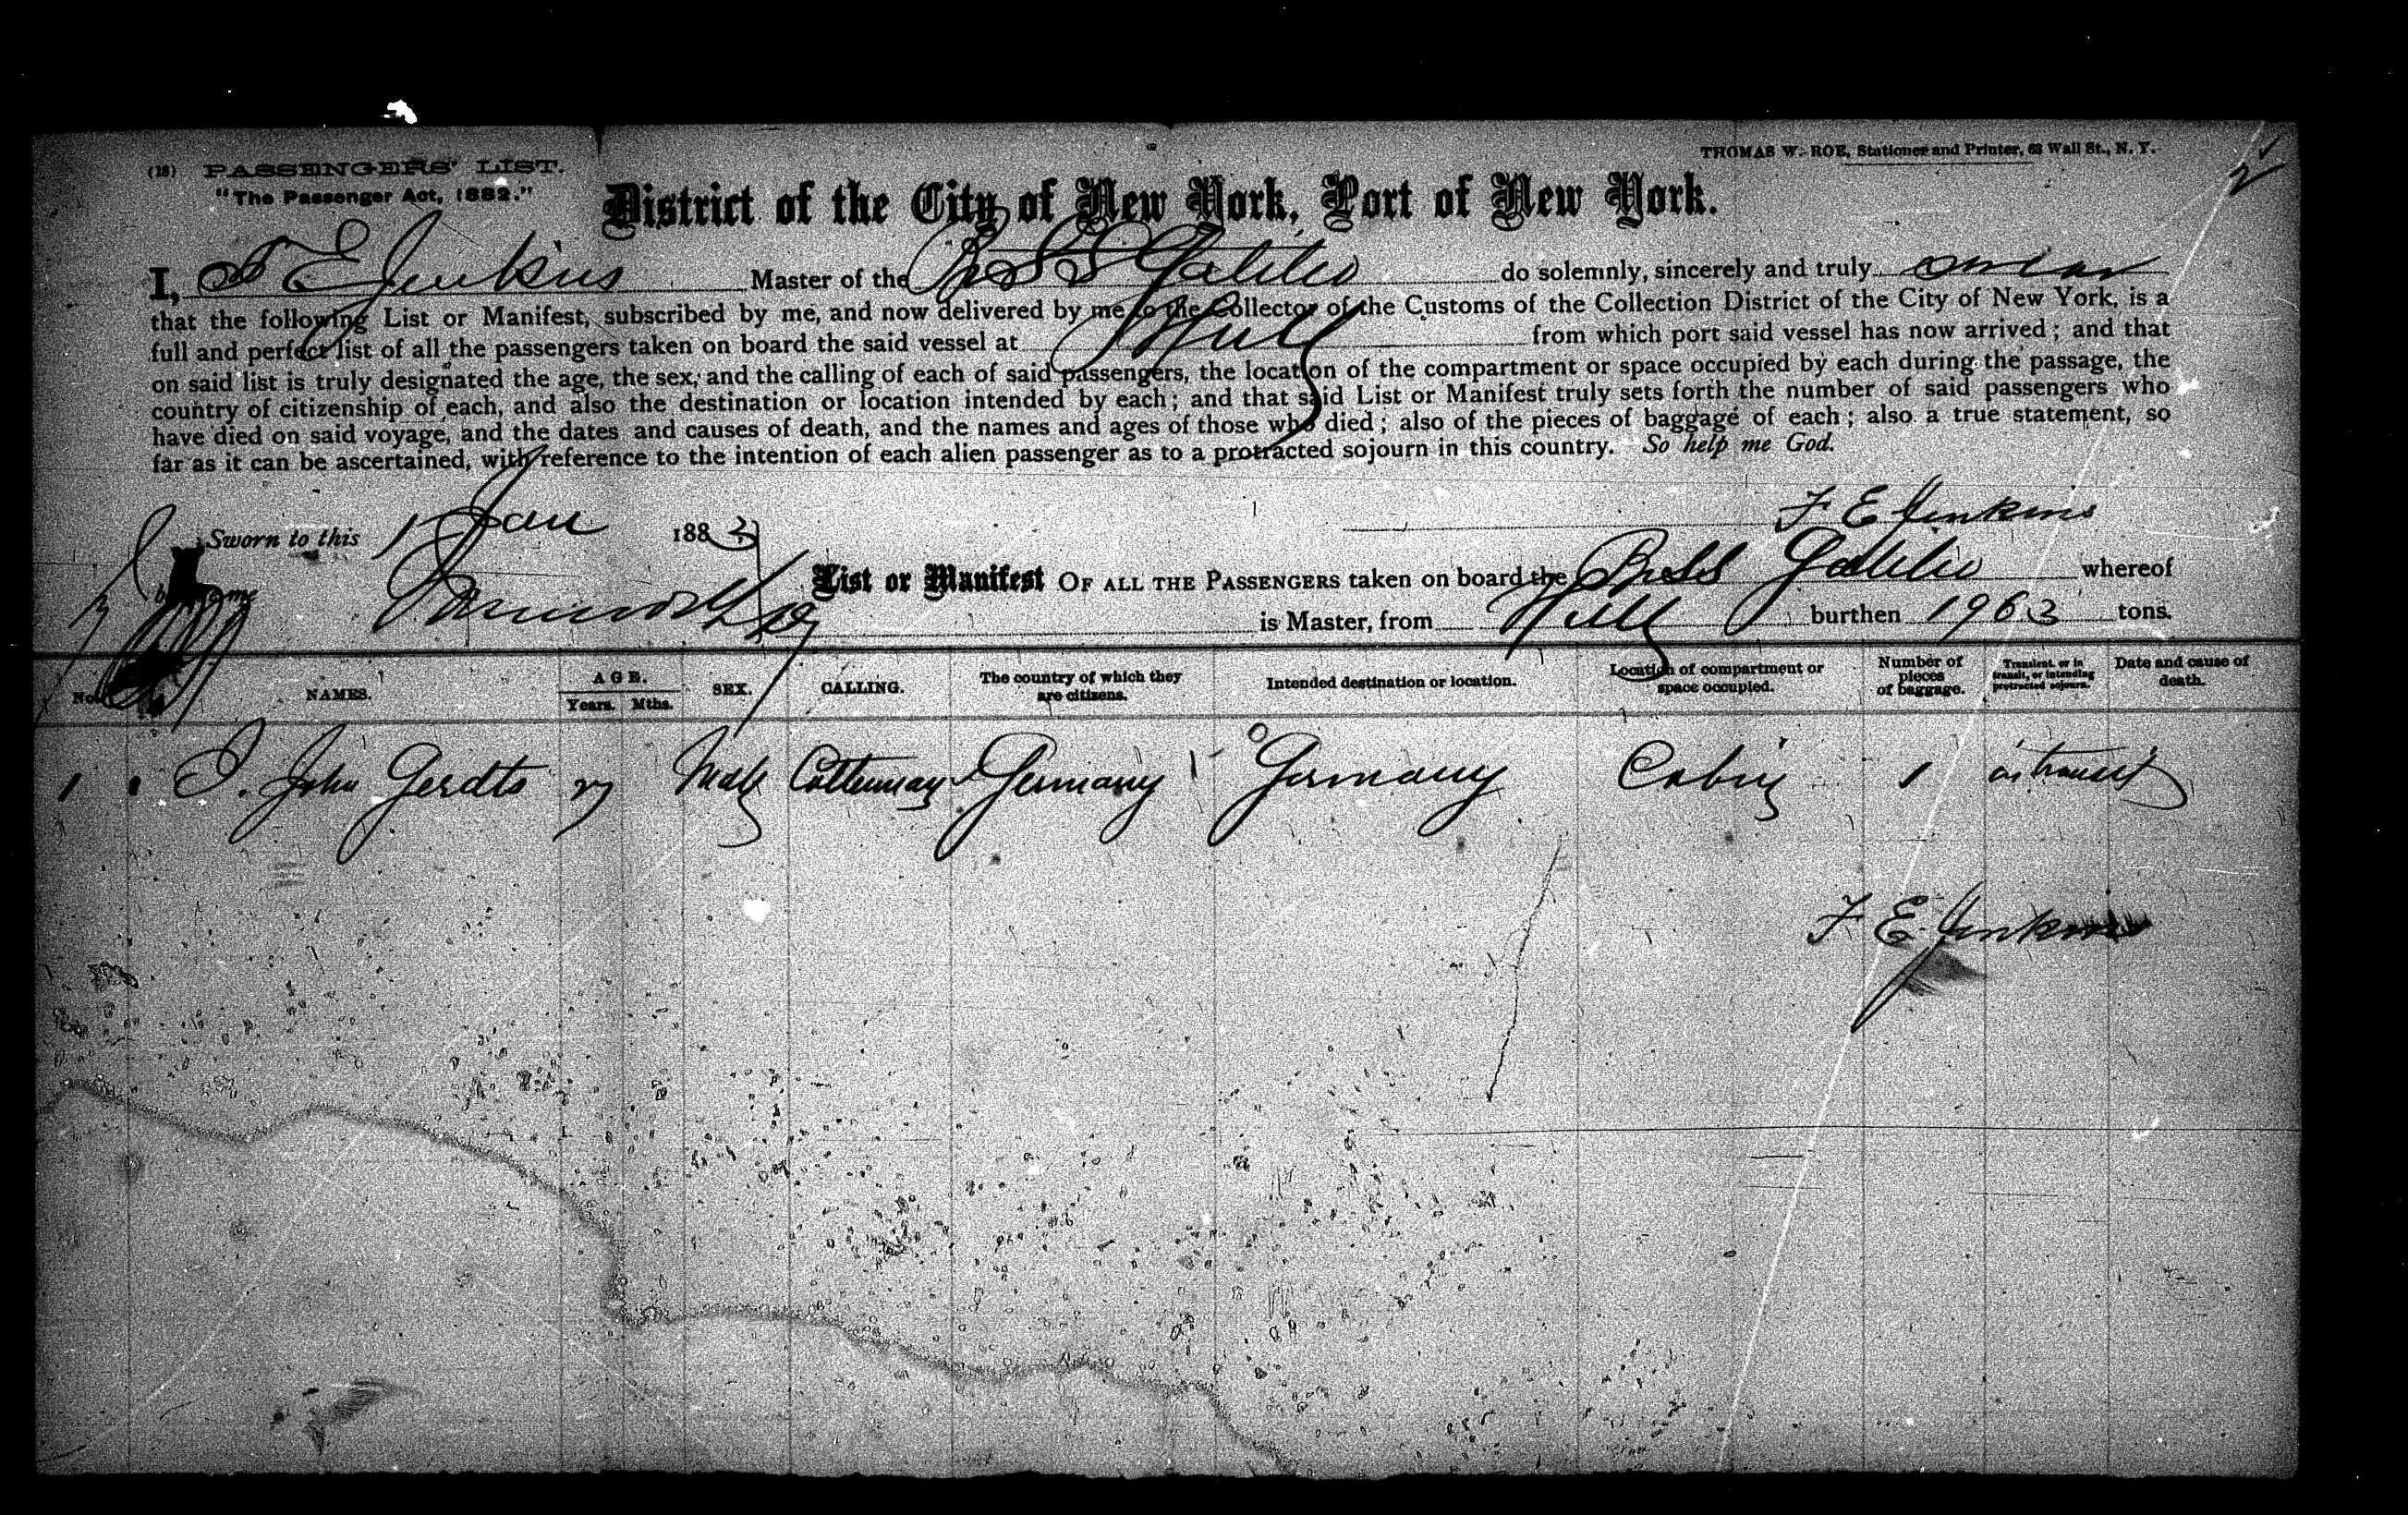 (18) PASSENGERS' LIST.
THOMAS W. ROE, Stationer and Printer, 63 Wall St., N. Y.
"The Passenger Act, 1882."
District of the City of New York, Port of New York.
I, F E Jenkins Master of the Br SS Galileo do solemnly, sincerely and truly swear
that the following List or Manifest, subscribed by me, and now delivered by me to the Collector of the Customs of the Collection District of the City of New York, is a
full and perfect list of all the passengers taken on board the said vessel at Hull from which port said vessel has now arrived; and that
on said list is truly designated the age, the sex, and the calling of each of said passengers, the location of the compartment or space occupied by each during the passage, the
country of citizenship of each, and also the destination or location intended by each; and that said List or Manifest truly sets forth the number of said passengers who
have died on said voyage, and the dates and causes of death, and the names and ages of those who died; also of the pieces of baggage of each; also a true statement, so
far as it can be ascertained, with reference to the intention of each alien passenger as to a protracted sojourn in this country. So help me God.
F E Jenkins
Sworn to this 1 Jan 1883
List or Manifest OF ALL THE PASSENGERS taken on board the Br SS Galileo whereof
is Master, from Hull burthen 1963 tons.
No. NAMES. AGE. Years. Mths. SEX. CALLING. The country of which they are citizens. Intended destination or location. Location of compartment or space occupied. Number of pieces of baggage. Transient, or in transit, or intending protracted sojourn. Date and cause of death.
1 John Gerdts 27 Male Germany Germany Cabin 1 in transit
F. E. Jenkins